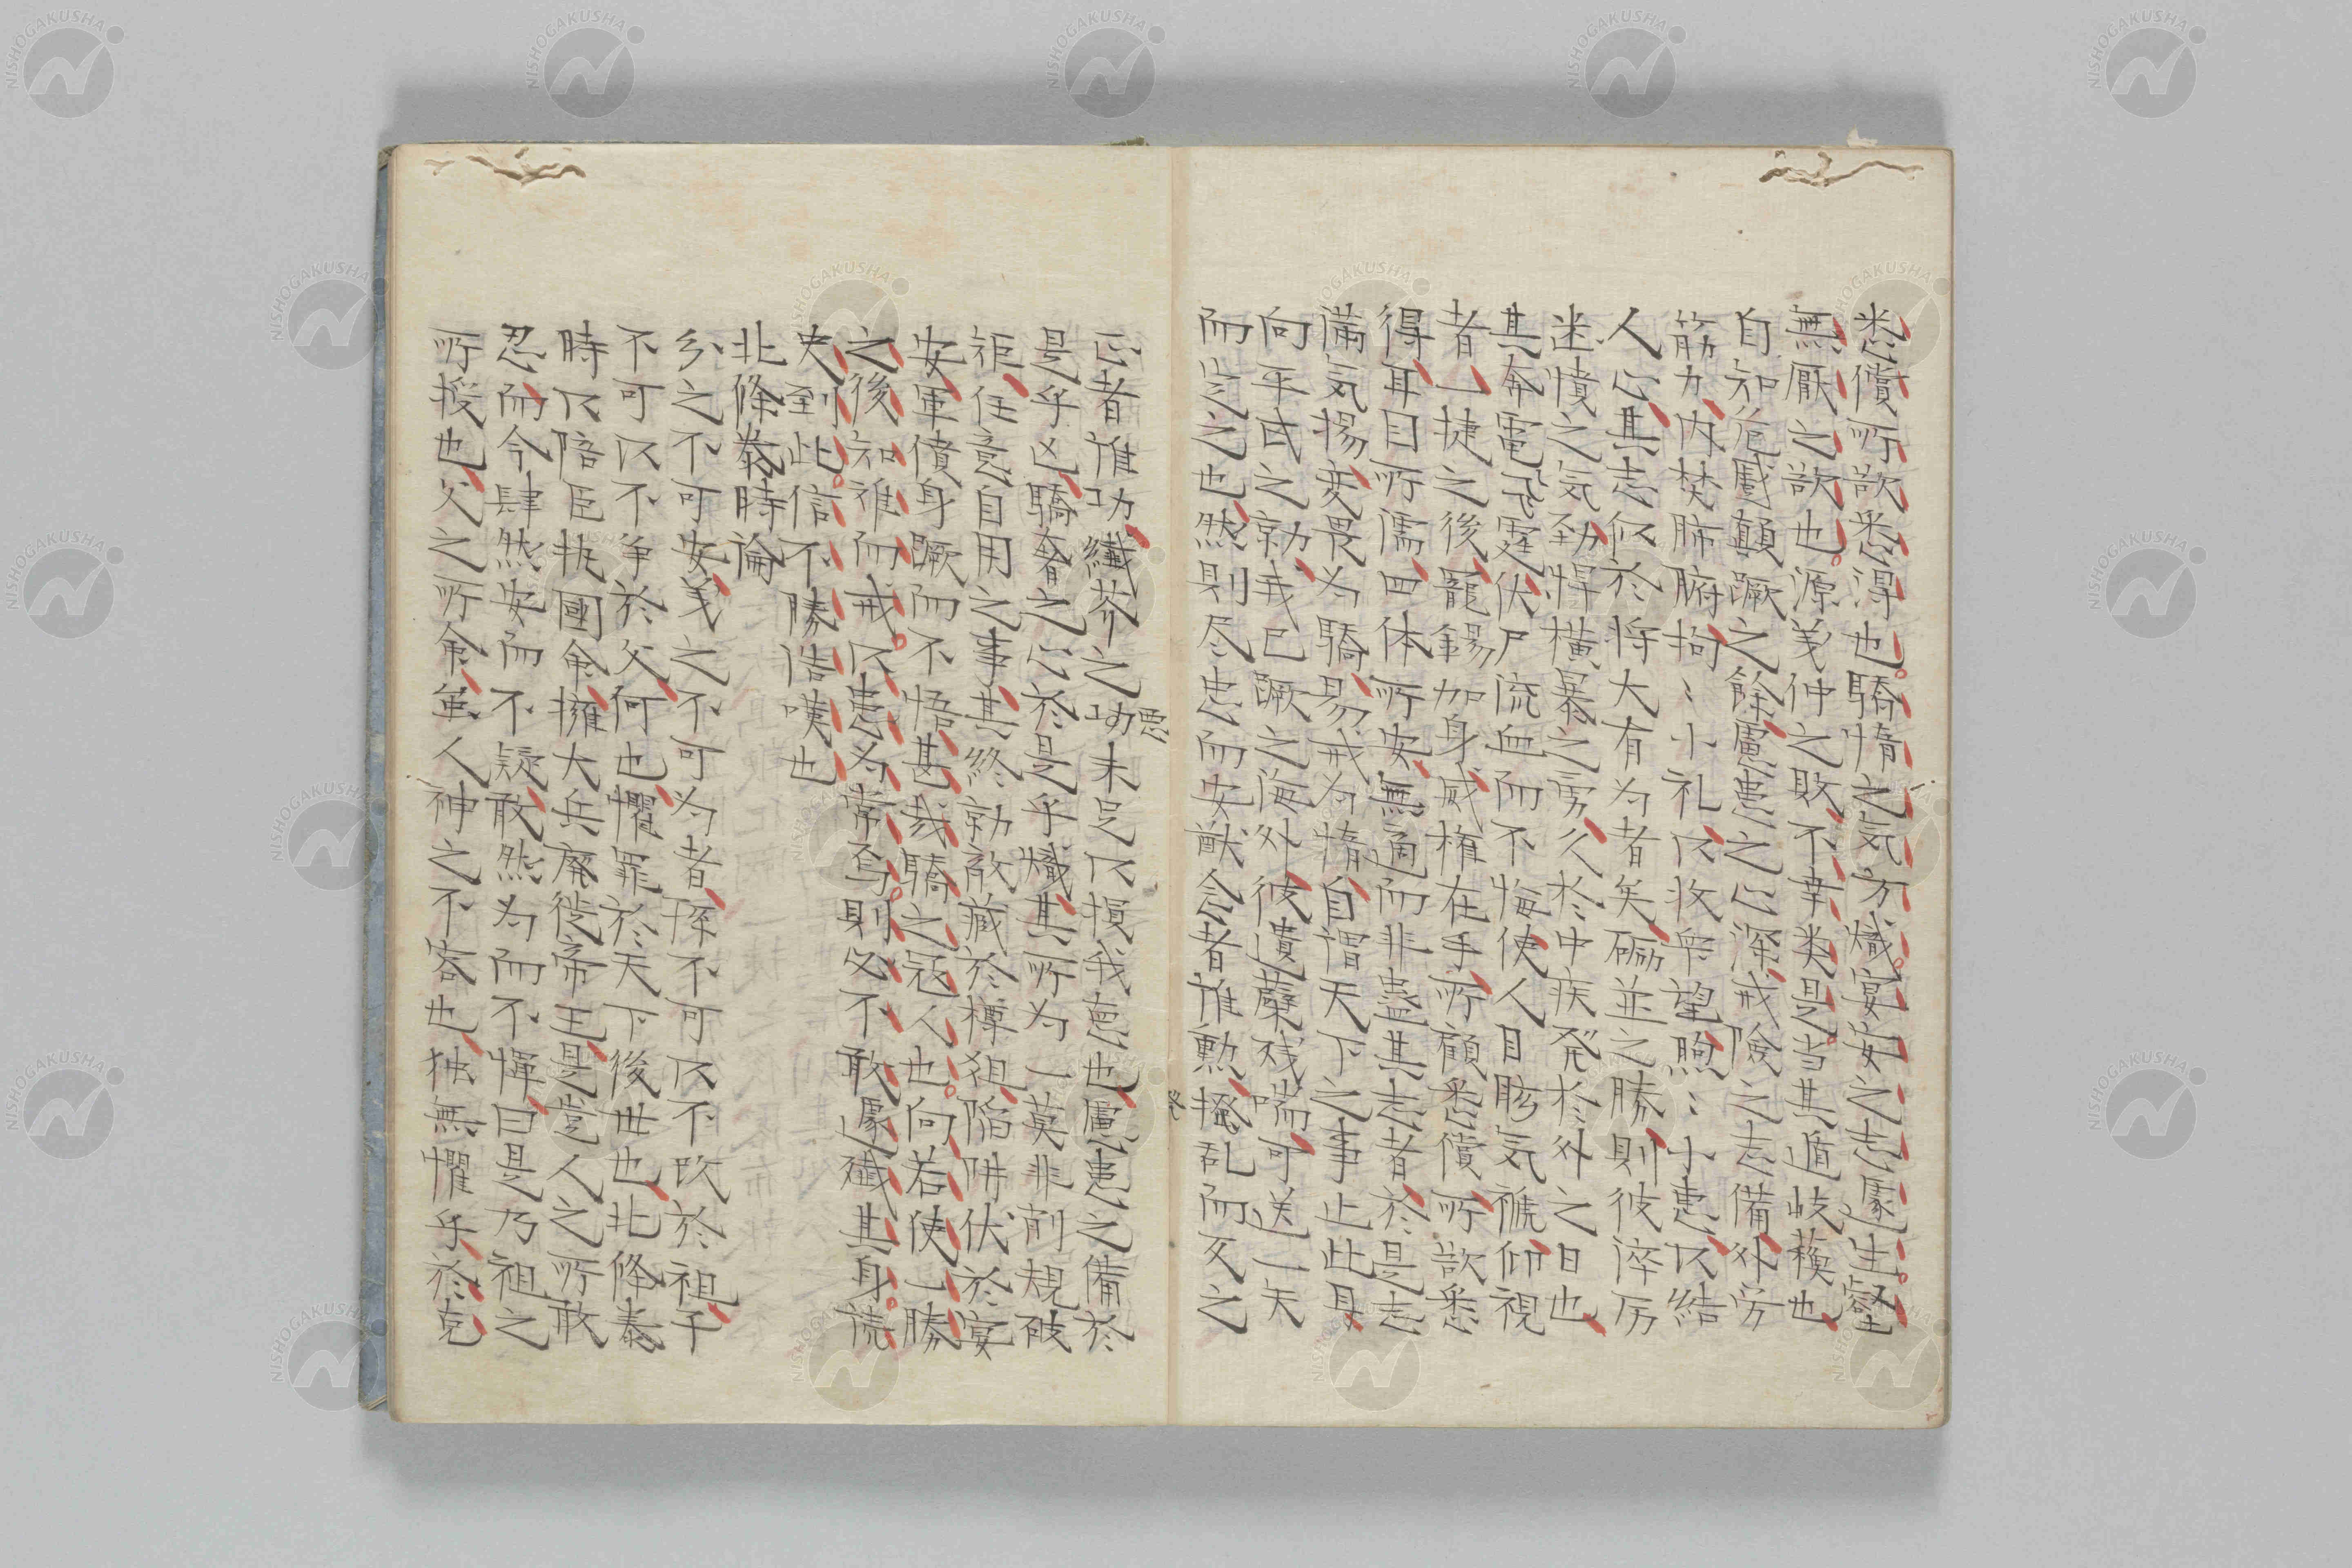 悉償所欲悉得也驕惰之気方熾宴安之志遽生壑
無厭之欲也源義仲之敗不幸类是当其遁岐蘓也
自知危慼顛蹶之餘慮患之心深戒険之志備外労
筋力内焚肺腑拘〻小礼以收衆望煦〻小恵以結
人心其志似於将大有为者矣礪並之勝則彼淬厉
迷憤之気勁悍横暴之勇久於中疾発於外之日也
其奔電飛霆伏尸流血而不悔使人目眩気褫仰視
者一捷之後寵錫加身威権在手所顧悉償所欲悉
得耳目所濡四体所安無適而非蛊其志者於是志
満気揚変畏为驕易戒为惰自謂天下之事止此耳
向平氏之勍我已蹶之海外彼遺蘖残喘可送一天
而定之也然則尽忠而安猷会者誰勲搔乱而反之
正者誰功纖芥之功未足以損我悳也慮患之備於
是乎亡驕奢之心於是乎熾其所为一莫非削規破
矩任意自用之事其終勍敵蔵於樽俎陥阱伏於宴
安軍僨身蹶而不悟甚哉驕之冦人也向若使一勝
之後知难而戒以患为常焉則必不敢遽殱其身読
史到此信不勝浩嘆也
北條泰時論
分之不可安義之不可为者孫不可以不改於祖子
不可以不争於父何也懼罪於天下後世也北條泰
時以陪臣执國命擁大兵廃徙帝王是豈人之所敢
忍而今肆然安而不疑敢然为而不憚曰是乃祖之
所授也父之所命虽人神之不容也独無懼乎於克